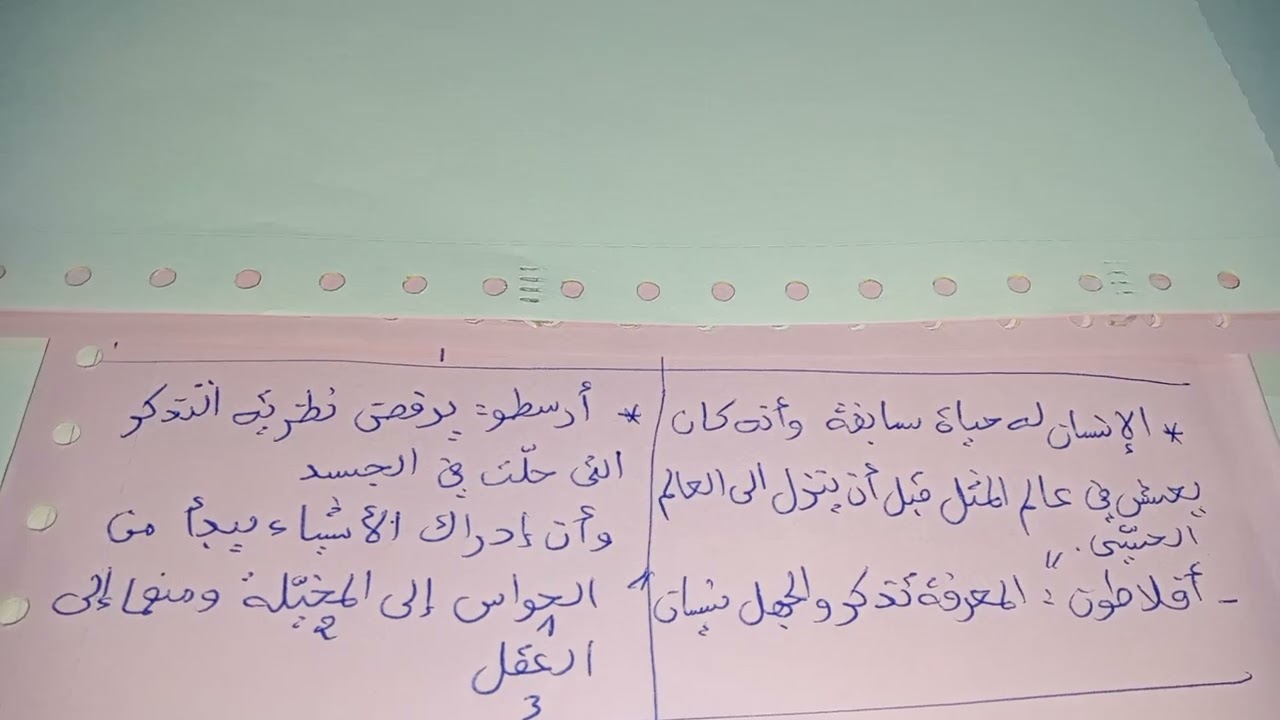 * الإنسان له حياة سابقة وأنه كان
يعيش في عالم المثل قبل أن ينزل الى العالم
الحسّي.
- أفلاطون: "المعرفة تذكر والجهل نسيان"
* أرسطو: يرفض نظرية التذكر
التي حلّت في الجسد
وأن إدراك الأشياء يبدأ من
الحواس إلى المخيّلة ومنها إلى
1 2
العقل
3